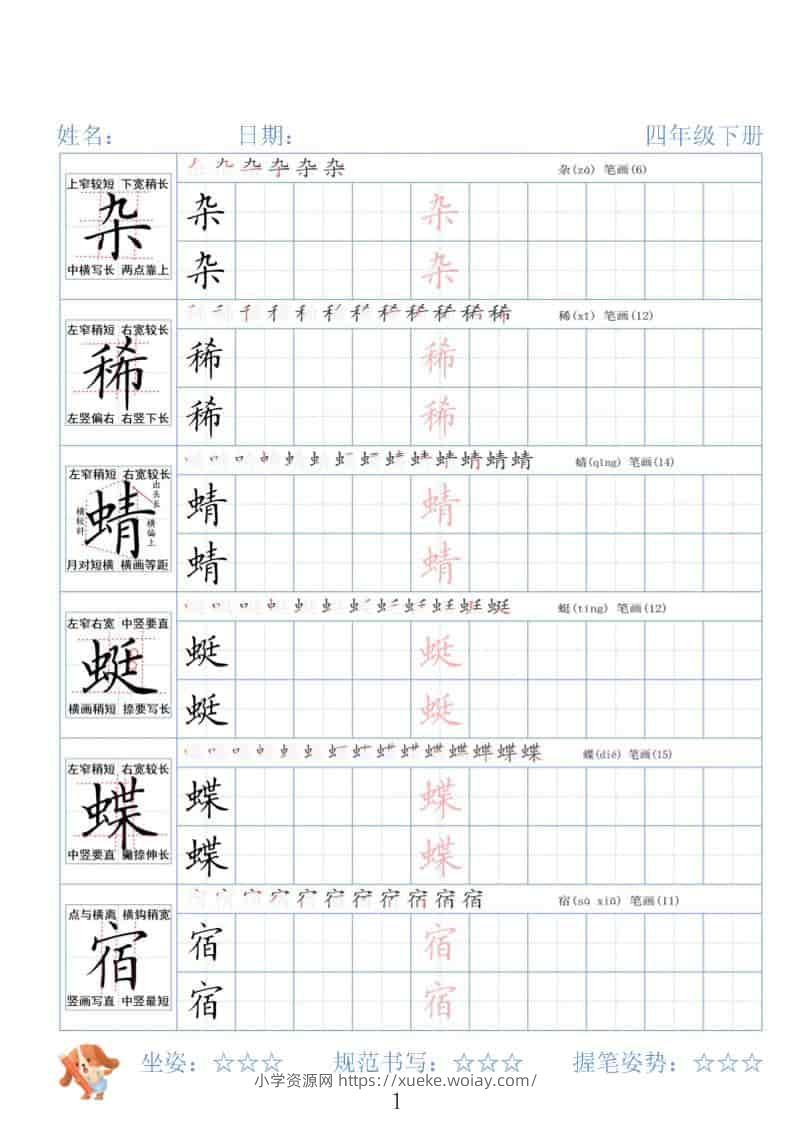 姓名： 日期： 四年级下册
杂(zá) 笔画(6)
上窄较短 下宽稍长
杂
中横写长 两点靠上
杂 杂
杂 杂
稀(xī) 笔画(12)
左窄稍短 右宽较长
稀
左竖偏右 右竖下长
稀 稀
稀 稀
蜻(qīng) 笔画(14)
左窄稍短 右宽较长
出头长
横较斜
横偏上
蜻
月对短横 横画等距
蜻 蜻
蜻 蜻
蜓(tíng) 笔画(12)
左窄右宽 中竖要直
蜓
横画稍短 捺要写长
蜓 蜓
蜓 蜓
蝶(dié) 笔画(15)
左窄稍短 右宽较长
蝶
中竖要直 撇捺伸长
蝶 蝶
蝶 蝶
宿(sù xiǔ) 笔画(11)
点与横离 横钩稍宽
宿
竖画写直 中竖最短
宿 宿
宿 宿
坐姿：☆☆☆ 规范书写：☆☆☆ 握笔姿势：☆☆☆
小学资源网 https://xueke.woiay.com/
1